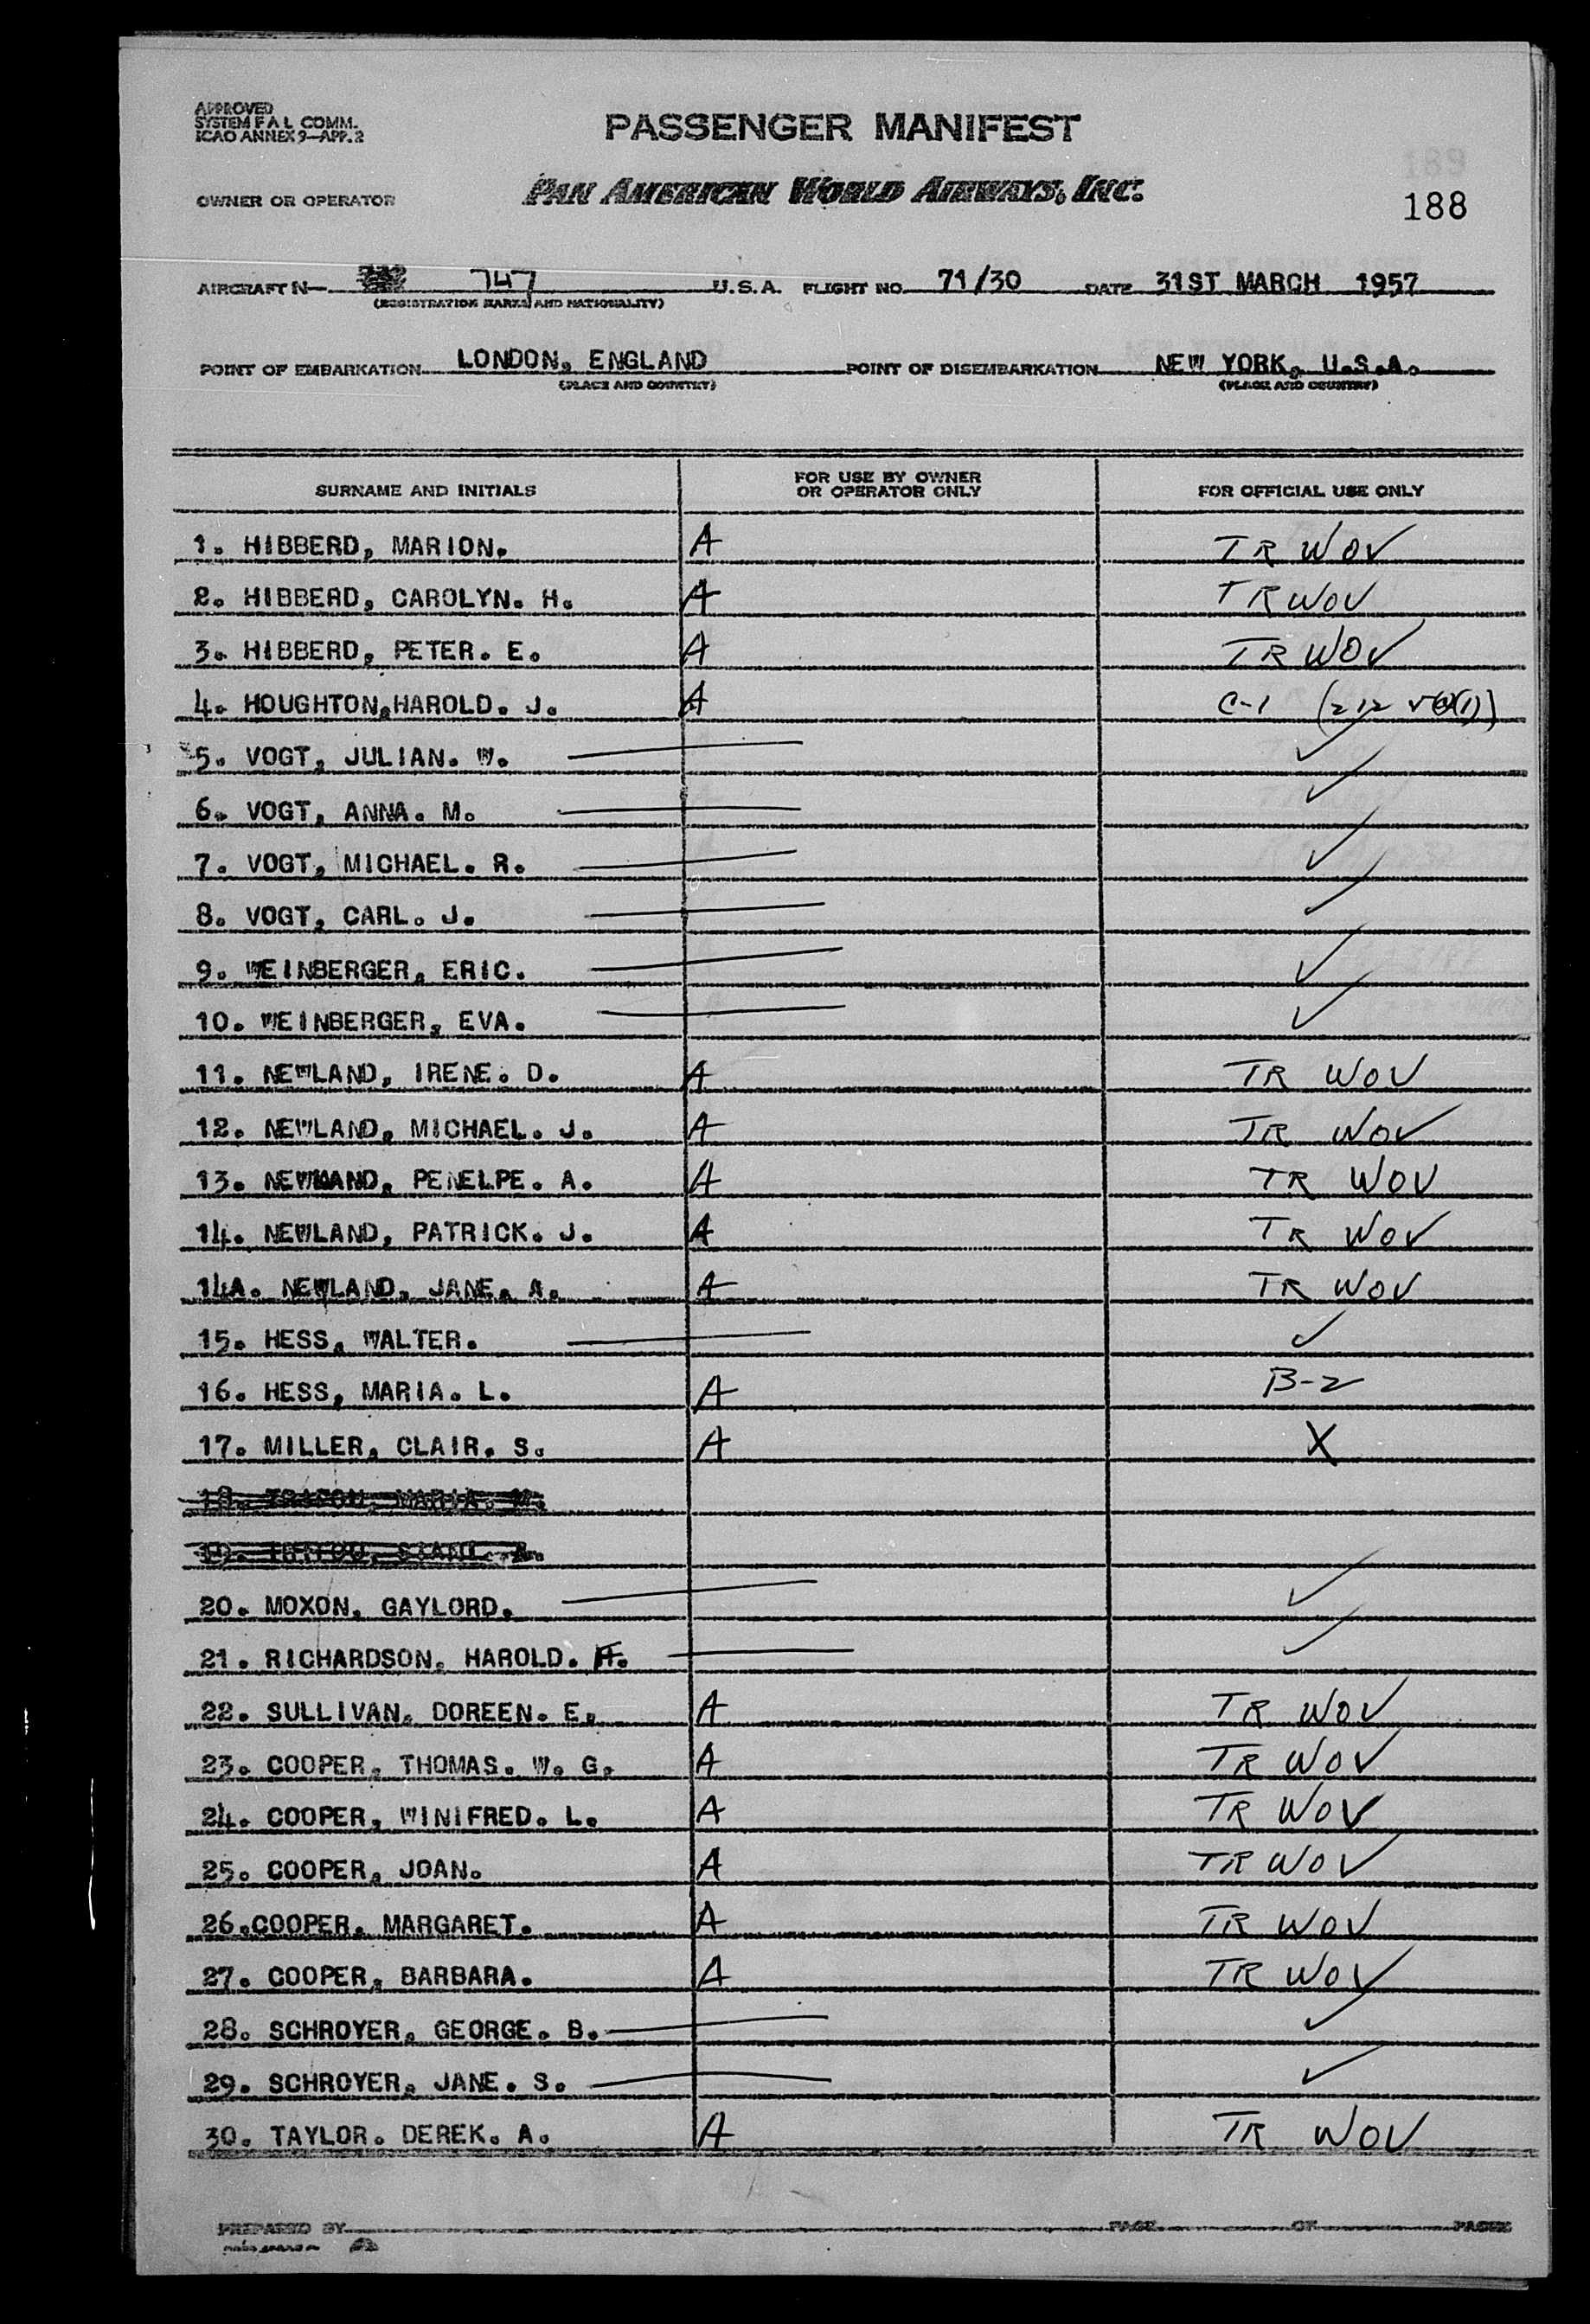 APPROVED
SYSTEM F A L COMM.
ICAO ANNEX 9—APP. 2
PASSENGER MANIFEST
189
OWNER OR OPERATOR PAN AMERICAN WORLD AIRWAYS, INC.
188
AIRCRAFT N— 747 U.S.A. FLIGHT NO. 71/30 DATE 31ST MARCH 1957
(REGISTRATION MARKS AND NATIONALITY)
POINT OF EMBARKATION LONDON, ENGLAND POINT OF DISEMBARKATION NEW YORK, U.S.A.
(PLACE AND COUNTRY) (PLACE AND COUNTRY)
SURNAME AND INITIALS FOR USE BY OWNER OR OPERATOR ONLY FOR OFFICIAL USE ONLY
1. HIBBERD, MARION. A TR WOV
2. HIBBERD, CAROLYN. H. A TR WOV
3. HIBBERD, PETER. E. A TR WOV
4. HOUGHTON,HAROLD. J. A C-1
5. VOGT, JULIAN. W. — ✓
6. VOGT, ANNA. M. — ✓
7. VOGT, MICHAEL. R. — ✓
8. VOGT, CARL. J. — ✓
9. WEINBERGER, ERIC. — ✓
10. WEINBERGER, EVA. — ✓
11. NEWLAND, IRENE. D. A TR WOV
12. NEWLAND, MICHAEL. J. A TR WOV
13. NEWLAND, PENELPE. A. A TR WOV
14. NEWLAND, PATRICK. J. A TR WOV
14A. NEWLAND, JANE. A. A TR WOV
15. HESS, WALTER. — ✓
16. HESS, MARIA. L. A B-2
17. MILLER, CLAIR. S. A X
20. MOXON, GAYLORD. — ✓
21. RICHARDSON, HAROLD. H. — ✓
22. SULLIVAN, DOREEN. E. A TR WOV
23. COOPER, THOMAS. W. G. A TR WOV
24. COOPER, WINIFRED. L. A TR WOV
25. COOPER, JOAN. A TR WOV
26.COOPER, MARGARET. A TR WOV
27. COOPER, BARBARA. A TR WOV
28. SCHROYER, GEORGE. B. — ✓
29. SCHROYER, JANE. S. — ✓
30. TAYLOR. DEREK. A. A TR WOV
PREPARED BY PAGE OF PAGES